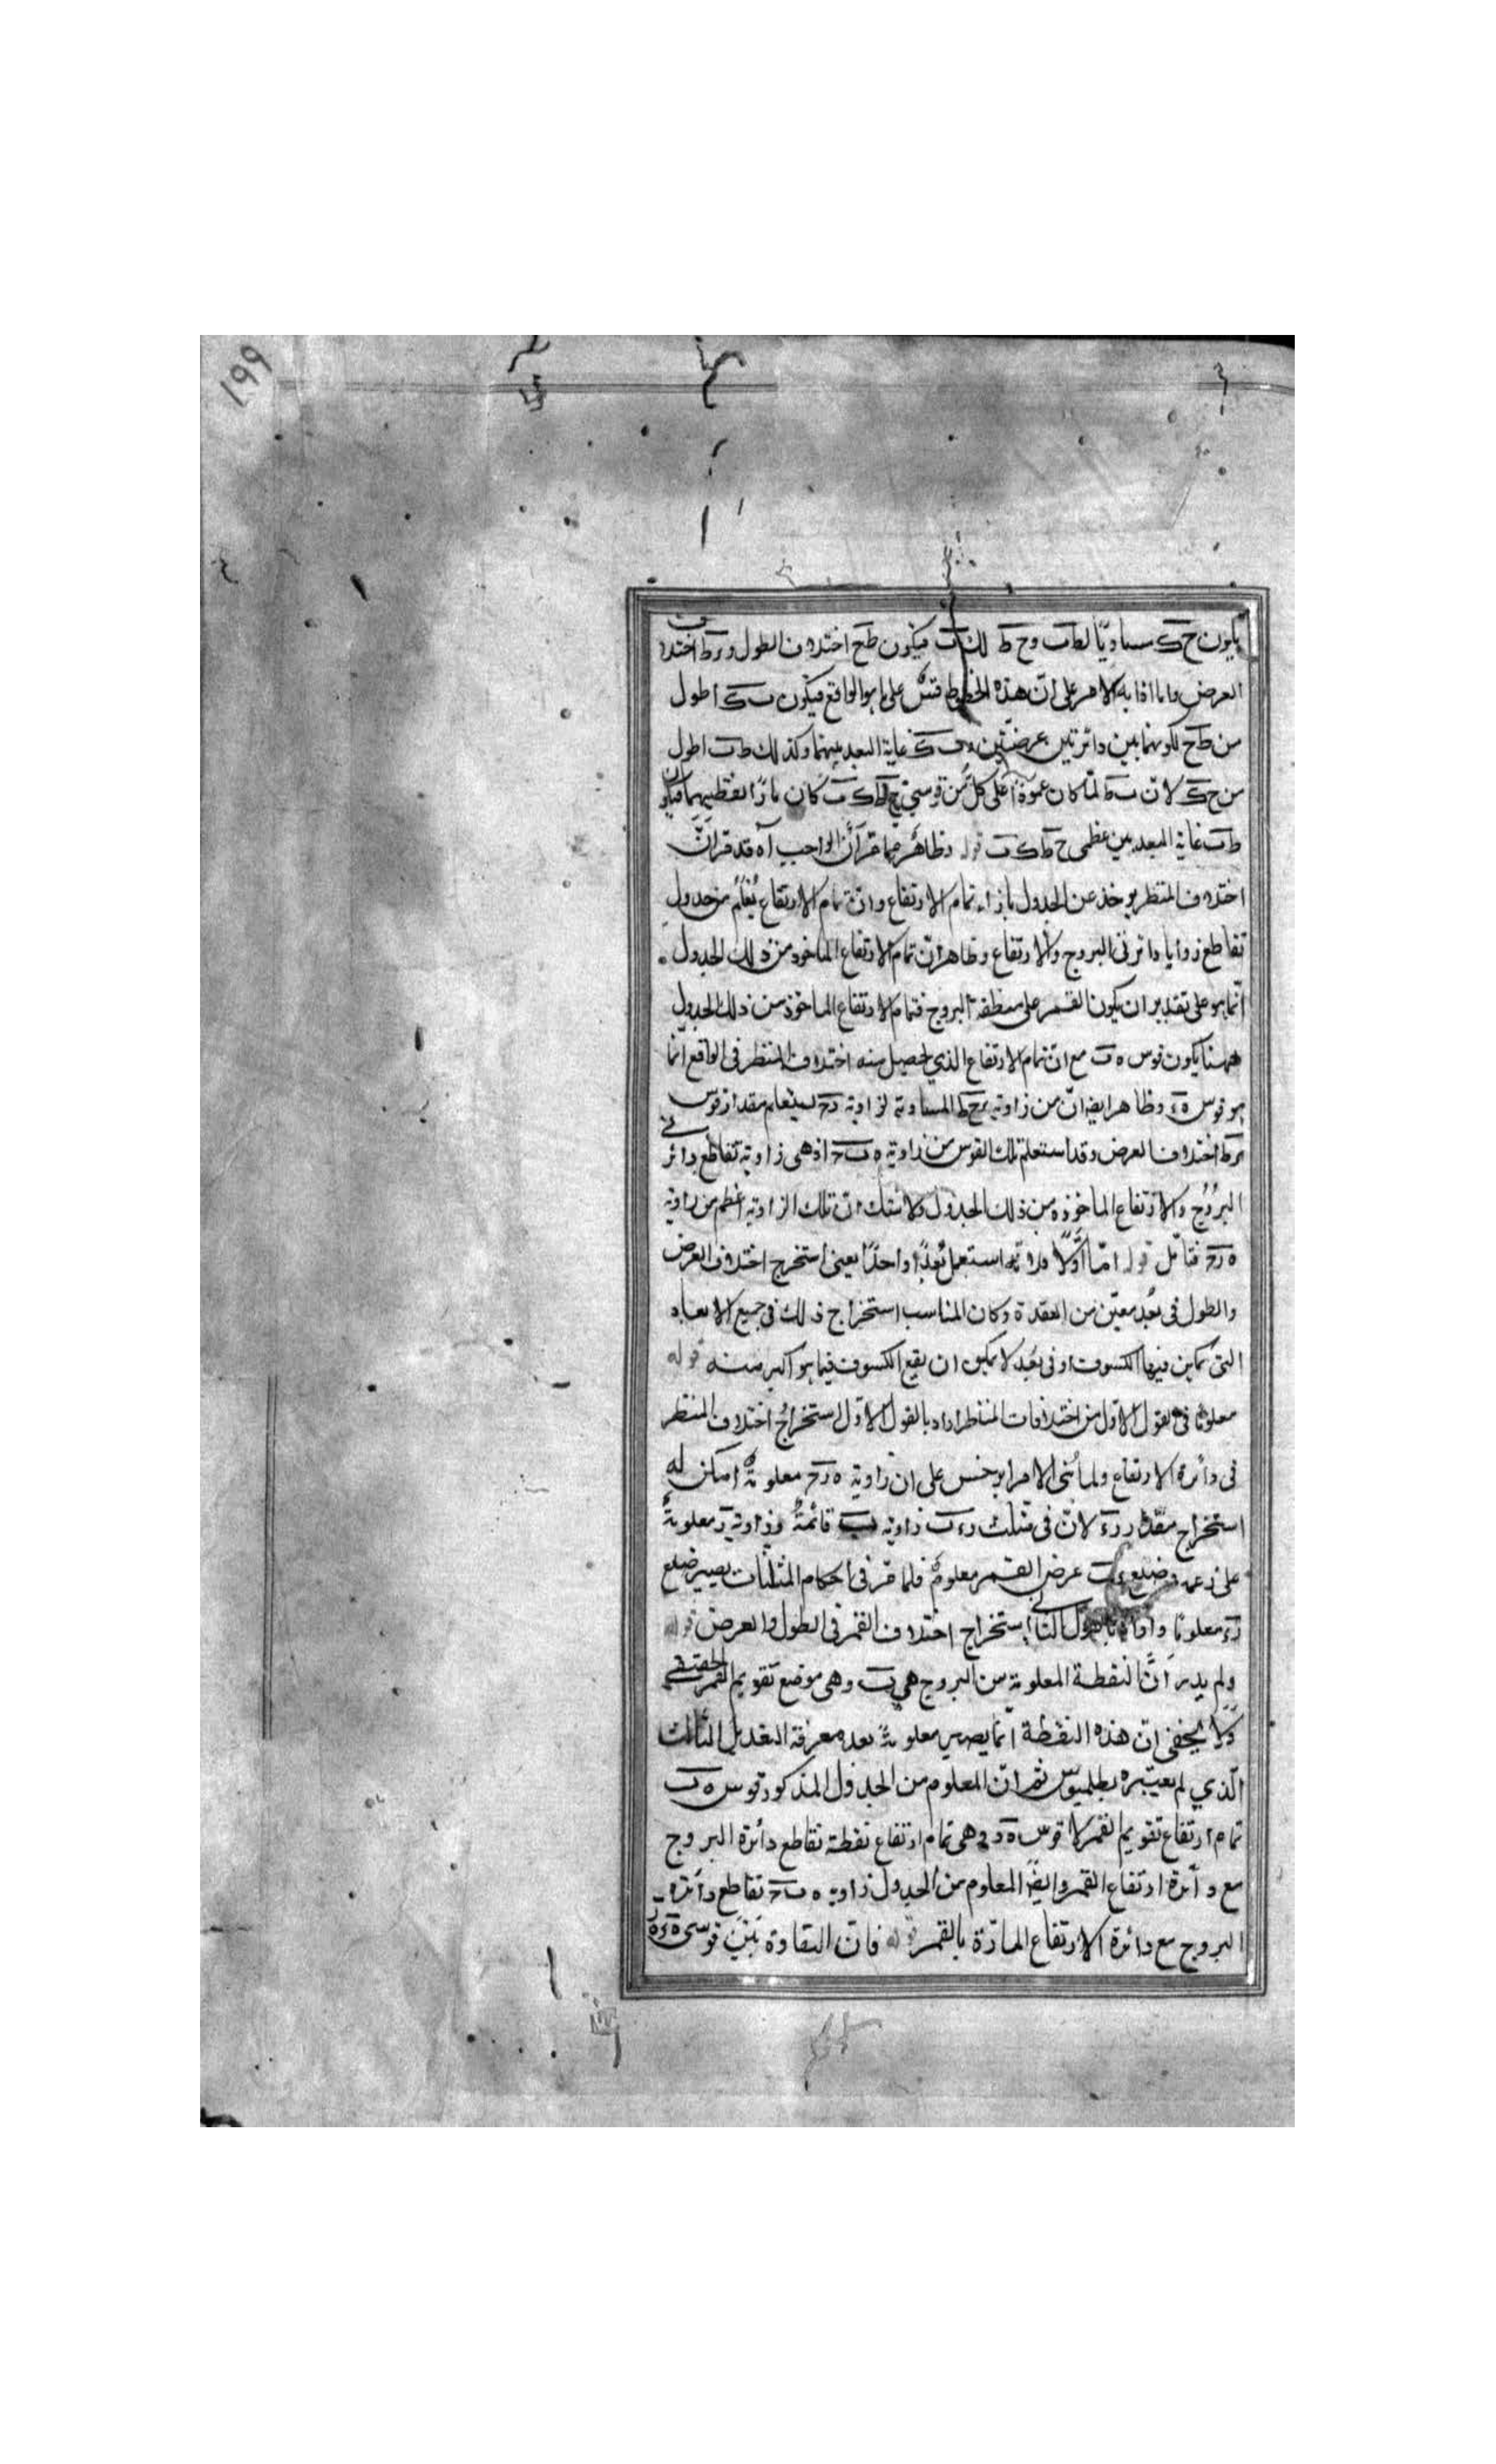 ١٩٩
يكون ح ك مساويا لط ب وح ط لك ب فيكون ط ح اختلاف الطول و ر ط اختلاف
العرض واما اذا الامر على ان هذه الخطوط قسى على ما هو الواقع فيكون ب ك اطول
من ط ح لكونهما بين دائرتين عرضيتين و ب ك غاية البعد بينهما وكذلك ط ب اطول
من ح ك لان ب ط لما كان عمودا على كل من قوسى ح ط ك ب كان مارا بقطبيهما فيكون
ط ب غاية البعد بين عظمى ح ط ك ب قوله وظاهر مما مر أن الواجب آه قد مر ان
اختلاف المنظر يوخذ عن الجدول بازاء تمام الارتفاع وان تمام الارتفاع يُعلم من جدول
تقاطع زوايا دائرتى البروج والارتفاع وظاهر ان تمام الارتفاع الماخوذ من ذلك الجدول
انما هو على تقدير ان يكون القمر على منطقة البروج فتمام الارتفاع الماخوذ من ذلك الجدول
ههنا يكون قوس ه ب مع ان تمام الارتفاع الذي يحصل منه اختلاف المنظر فى الواقع انما
هو قوس ه ء وظاهر ايضا ان من زاوية ر ح ط المساوية لزاوية يستعلم مقدار قوس
ر ط اختلاف العرض وقد استعلم تلك القوس من زاوية ه ب ح اذ هى زاوية تقاطع دائرتى
البُرُوج والارتفاع الماخوذه من ذلك الجدول ولا شك ان تلك الزاوية اعظم من زاوية
ه ر ح فتامل قوله امّا أوّلًا فلانه استعمل بُعدًا واحدًا يعنى استخرج اختلاف العرض
والطول فى بُعد معيّن من العقدة وكان المناسب استخراج ذلك فى جميع الابعاد
التى يمكن فيها الكسوف او فى بُعد لا يمكن ان يقع الكسوف فيما هو اكبر منه قوله
معلومًا فى القول الاول من اختلافات المناظر اراد بالقول الاول استخراج اختلاف المنظر
فى دائرة الارتفاع ولما بُنى الامر ابرخس على ان زاوية ه ر ح معلومةٌ امكن له
استخراج مقدار ر ء لان فى مثلث ر ء ب زاوية ب قائمةٌ وزاوية ر معلومةٌ
على زعمه وضلع ء ب عرض القمر معلومٌ فلما مر فى احكام المثلثات يصير ضلع
ر ء معلومًا واراد بالقول الثانى استخراج اختلاف القمر فى الطول والعرض قوله
ولم يدر أنّ النقطة المعلومة من البروج هى ب وهى موضع تقويم القمر الحقيقى
ولا يخفى ان هذه النقطة انما يصير معلومةً بعد معرفة التعديل الثالث
الّذي لم يعتبره بطلميوس ثم انّ المعلوم من الجدول المذكور قوس ه ب
تمام ارتفاع تقويم القمر لا قوس ه ر وهى تمام ارتفاع نقطة تقاطع دائرة البروج
مع دائرة ارتفاع القمر وايضًا المعلوم من الجدول زاوية ه ب ح تقاطع دائرة
البروج مع دائرة الارتفاع المارّة بالقمر قوله فان التفاوة بَيْنَ قوسى ه ء ه ر